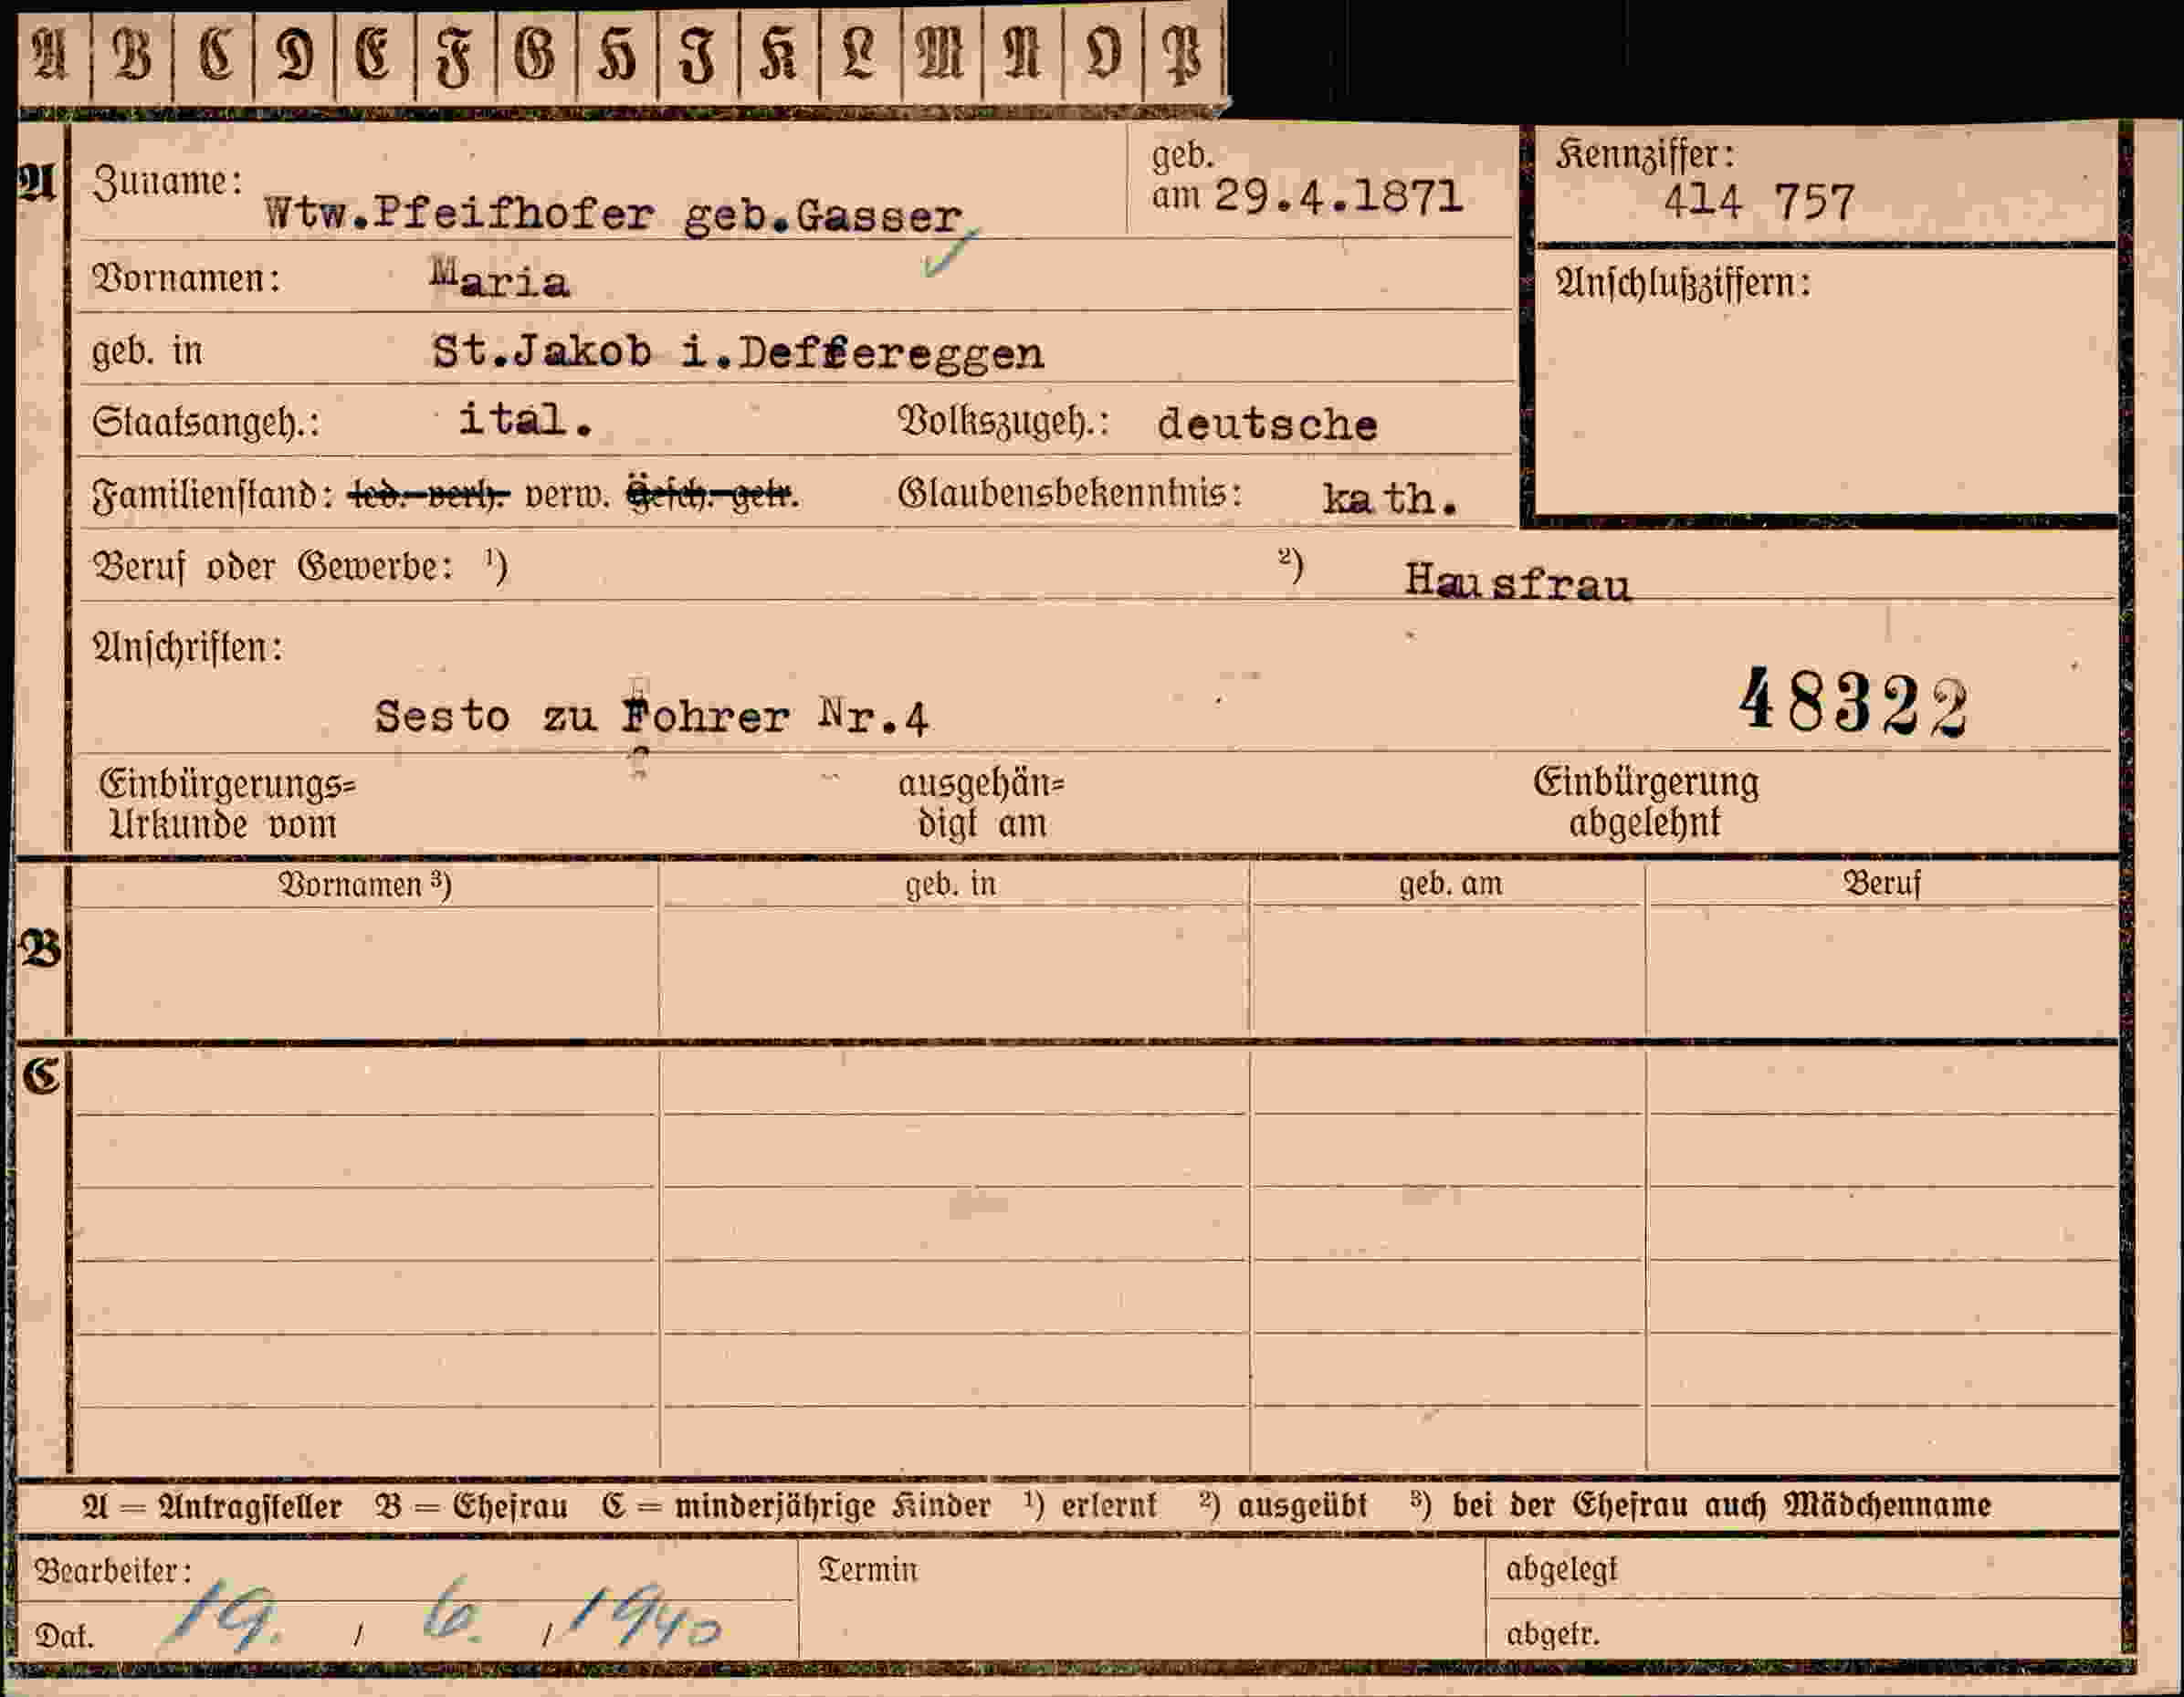 A B C D E F G H I K L M N O P
A Zuname: Wtw.Pfeifhofer geb.Gasser
geb. am 29.4.1871
Kennziffer: 414 757
Vornamen: Maria
Anschlußziffern:
geb. in St.Jakob i.Deffereggen
Staatsangeh.: ital. Volkszugeh.: deutsche
Familienstand: led. verh. verw. Gesch. getr. Glaubensbekenntnis: kath.
Beruf oder Gewerbe: 1) 2) Hausfrau
Anschriften:
Sesto zu Fohrer Nr.4 48322
Einbürgerungs= ausgehän= Einbürgerung
Urkunde vom digt am abgelehnt
Vornamen 3) geb. in geb. am Beruf
B
C
A = Antragsteller B = Ehefrau C = minderjährige Kinder 1) erlernt 2) ausgeübt 3) bei der Ehefrau auch Mädchenname
Bearbeiter: Termin abgelegt
Dat. 19. / 6. / 1940 abgetr.